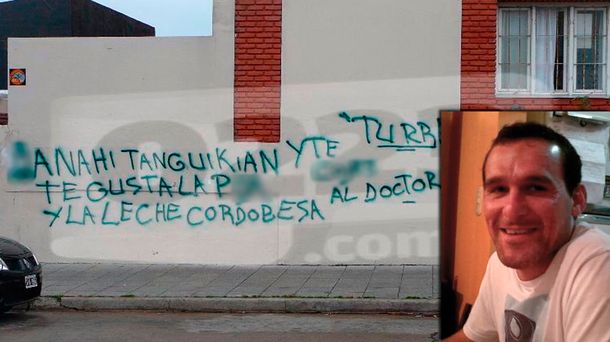 ANAHI TANGUIKIAN Y TE "TURB
TE GUSTA LA P AL DOCTOR
Y LA LECHE CORDOBESA
0223
.com